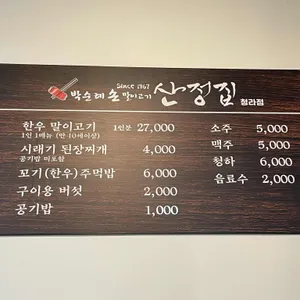 Since 1967
박순례 손 말이고기 산정집 청라점
한우 말이고기 1인분 27,000
1인 1메뉴 (만 10세이상)
시래기 된장찌개 4,000
공기밥 미포함
꼬기(한우)주먹밥 6,000
구이용 버섯 2,000
공기밥 1,000
소주 5,000
맥주 5,000
청하 6,000
음료수 2,000